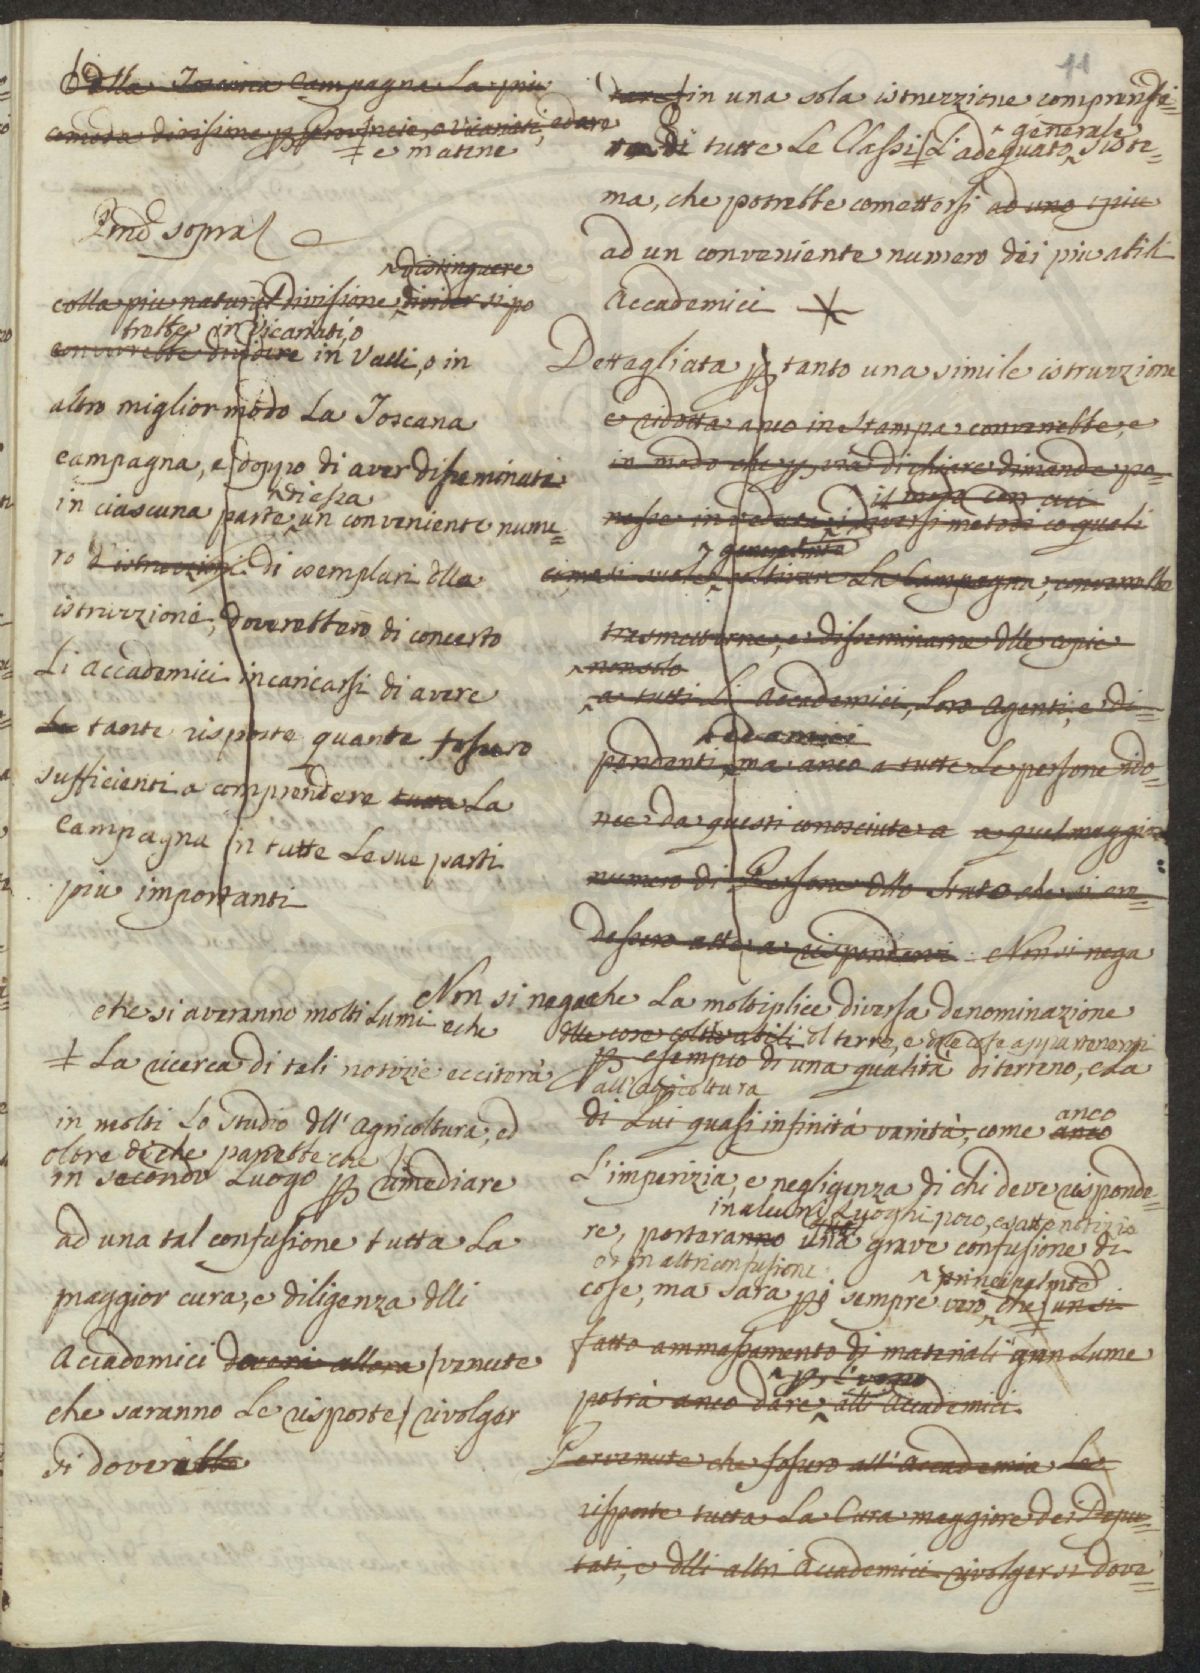 11
della Toscana Campagna la piu
comoda divisione Provincie, o Vicariati, ed are
e materie
sopra
distinguere
colla piu natural divisione divider si po
trebbe in Vicariati, o
converrebbe dividere in Valli, o in
altro miglior modo La Toscana
campagna, e doppo di aver disseminati
di essa
in ciascuna parte un conveniente nume=
ro d'istruzzioni di esemplari dlla
istruzzione, doverebbero di concerto
Li Accademici incaricarsi di avere
Le tante risposte quante fossero
sufficienti a comprendere tutta La
Campagna in tutte Le sue parti
piu importanti
che si averanno molti Lumi e che
La ricerca di tali notizie ecciterà
in molti Lo studio dll'Agricoltura, ed
oltre di che parrebbe che
in secondo Luogo rimediare
ad una tal confusione tutta La
maggior cura, e diligenza dlli
Accademici doversi allora venute
che saranno Le risposte rivolger
si doverebbe
in una sola istruzzione comprendi=
generale
di tutte Le Classi L'adequato Siste=
ma, che potrebbe comettersi ad uno i piu
ad un conveniente numero dei piu abili
Accademici
Dettagliata p tanto una simile istruzzione
e ridotta anco in stampa converrebbe, e
in modo che p via di chiare dimande po=
il modo con cui
nesse in veduta i diversi metodi co quali
generalmte
come si suole coltivare La Campagna, converrebbe
trasmetterne, e disseminarne dlle copie
non solo
a tutti Li Accademici, Loro Agenti, e di=
ed amici
pendenti ma anco a tutte Le persone ido=
nee da questi conosciute a a quel maggior
numero di Persone dllo Stato che si cre=
dessero atte a rispondervi. Non si nega
Non si nega che La moltiplice diversa denominazione
dlle cose coltivabili dl terro, e dlle cose appartenenti
p esempio di una qualità di terreno, e La
all'agricoltura
di Lui quasi infinità varietà, come anco
anco
L'imperizia, e negligenza di chi deve risponde=
in alcuni Luoghi poco esatte notizie
re, porteranno una grave confusione di
ed in altri confusione
cose, ma sarà poi sempre vero che un si
principalmte
fatto ammassamento di materiali gran Lume
potrà anco dare alli Accademici.
Pervenute che fossero all'Accademia Le
risposte tutta La Cura maggiore dei Depu=
tati, e dlli altri Accademici rivolger si dove=